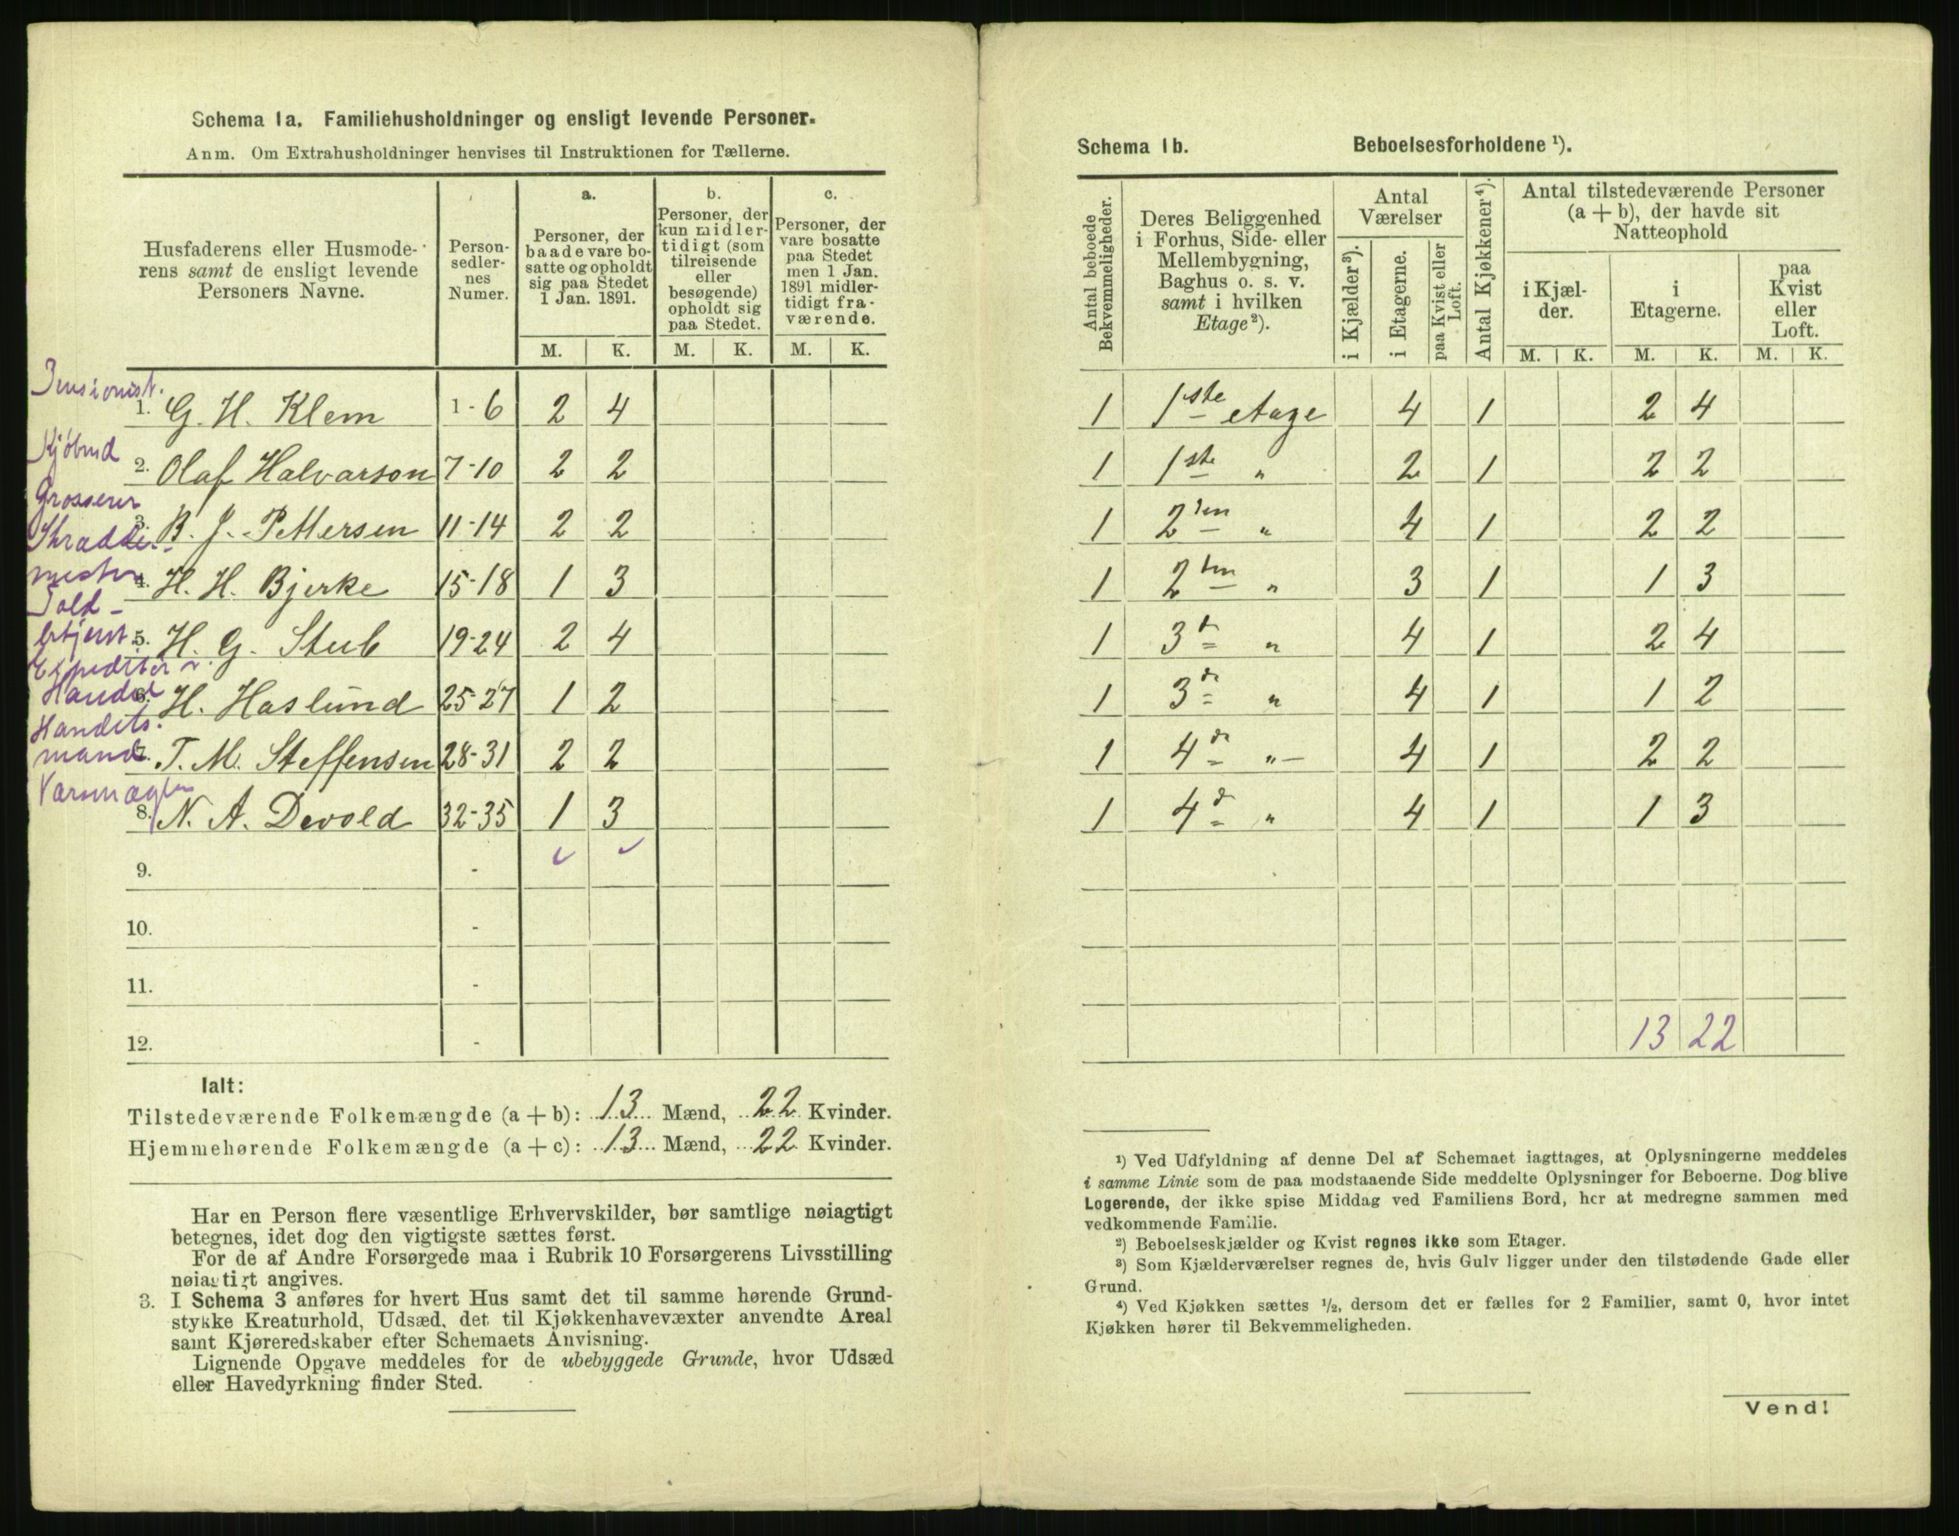 Schema 1a. Familiehusholdninger og ensligt levende Personer.
Anm. Om Extrahusholdninger henvises til Instruktionen for Tællerne.
Husfaderens eller Husmoderens samt de ensligt levende Personers Navne.
Personsedlernes Numer.
a. Personer, der baade vare bosatte og opholdt sig paa Stedet 1 Jan. 1891.
b. Personer, der kun midlertidigt (som tilreisende eller besøgende) opholdt sig paa Stedet.
c. Personer, der vare bosatte paa Stedet men 1 Jan. 1891 midlertidigt fraværende.
M. K. M. K. M. K.
Pensionist.
1. G. H. Klem 1-6 2 4
Kjøbmd
2. Olaf Halvarson 7-10 2 2
Grosserer
3. B. J. Pettersen 11-14 2 2
Skrædder-
mester
4. H. H. Bjerke 15-18 1 3
Told-
betjent
5. H. G. Stub 19-24 2 4
Expeditør
6. H. Haslund 25-27 1 2
Handels-
mand
7. T. M. Steffensen 28-31 2 2
8. N. A. Devold 32-35 1 3
9. -
10. -
11. -
12. -
Ialt:
Tilstedeværende Folkemængde (a + b): 13 Mænd, 22 Kvinder.
Hjemmehørende Folkemængde (a + c): 13 Mænd, 22 Kvinder.
Har en Person flere væsentlige Erhvervskilder, bør samtlige nøiagtigt
betegnes, idet dog den vigtigste sættes først.
For de af Andre Forsørgede maa i Rubrik 10 Forsørgerens Livsstilling
nøiagtigt angives.
3. I Schema 3 anføres for hvert Hus samt det til samme hørende Grund-
stykke Kreaturhold, Udsæd, det til Kjøkkenhavevæxter anvendte Areal
samt Kjøreredskaber efter Schemaets Anvisning.
Lignende Opgave meddeles for de ubebyggede Grunde, hvor Udsæd
eller Havedyrkning finder Sted.
Schema 1b. Beboelsesforholdene ¹).
Antal beboede Bekvemmeligheder.
Deres Beliggenhed i Forhus, Side- eller Mellembygning, Baghus o. s. v. samt i hvilken Etage ²).
Antal Værelser
i Kjælder ³).
i Etagerne.
paa Kvist eller Loft.
Antal Kjøkkener ⁴).
Antal tilstedeværende Personer (a + b), der havde sit Natteophold
i Kjælder.
i Etagerne.
paa Kvist eller Loft.
M. K. M. K. M. K.
1 1ste etage 4 1 2 4
1 1ste " 2 1 2 2
1 2den " 4 1 2 2
1 2den " 3 1 1 3
1 3d " 4 1 2 4
1 3d " 4 1 1 2
1 4d " 4 1 2 2
1 4d " 4 1 1 3
13 22
¹) Ved Udfyldning af denne Del af Schemaet iagttages, at Oplysningerne meddeles
i samme Linie som de paa modstaaende Side meddelte Oplysninger for Beboerne. Dog blive
Logerende, der ikke spise Middag ved Familiens Bord, her at medregne sammen med
vedkommende Familie.
²) Beboelseskjælder og Kvist regnes ikke som Etager.
³) Som Kjælderværelser regnes de, hvis Gulv ligger under den tilstødende Gade eller
Grund.
⁴) Ved Kjøkken sættes ½, dersom det er fælles for 2 Familier, samt 0, hvor intet
Kjøkken hører til Bekvemmeligheden.
Vend!